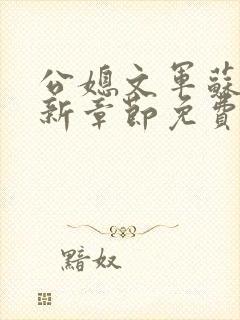 公媳文軍蘇
新章節免費
黯奴